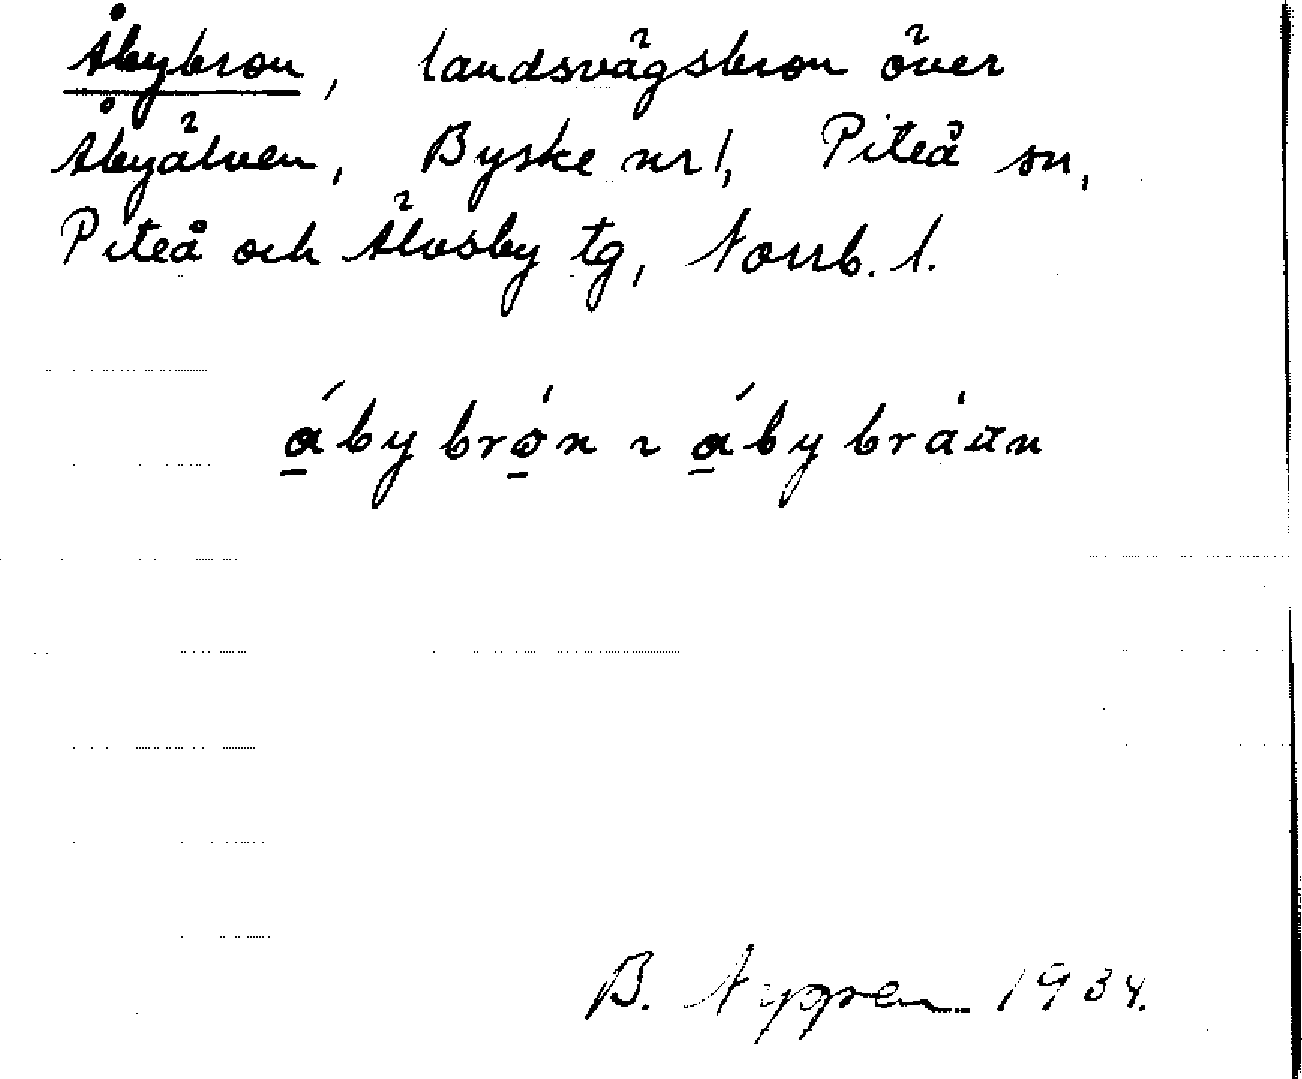 Åbybron, landsvägsbron över
Åbyälven, Byske nr 1, Piteå sn,
Piteå och Älvsby tg, Norrb. l.
á̱bybrò̱n ~ á̱bybráu̇n
B. Nygren 1934.